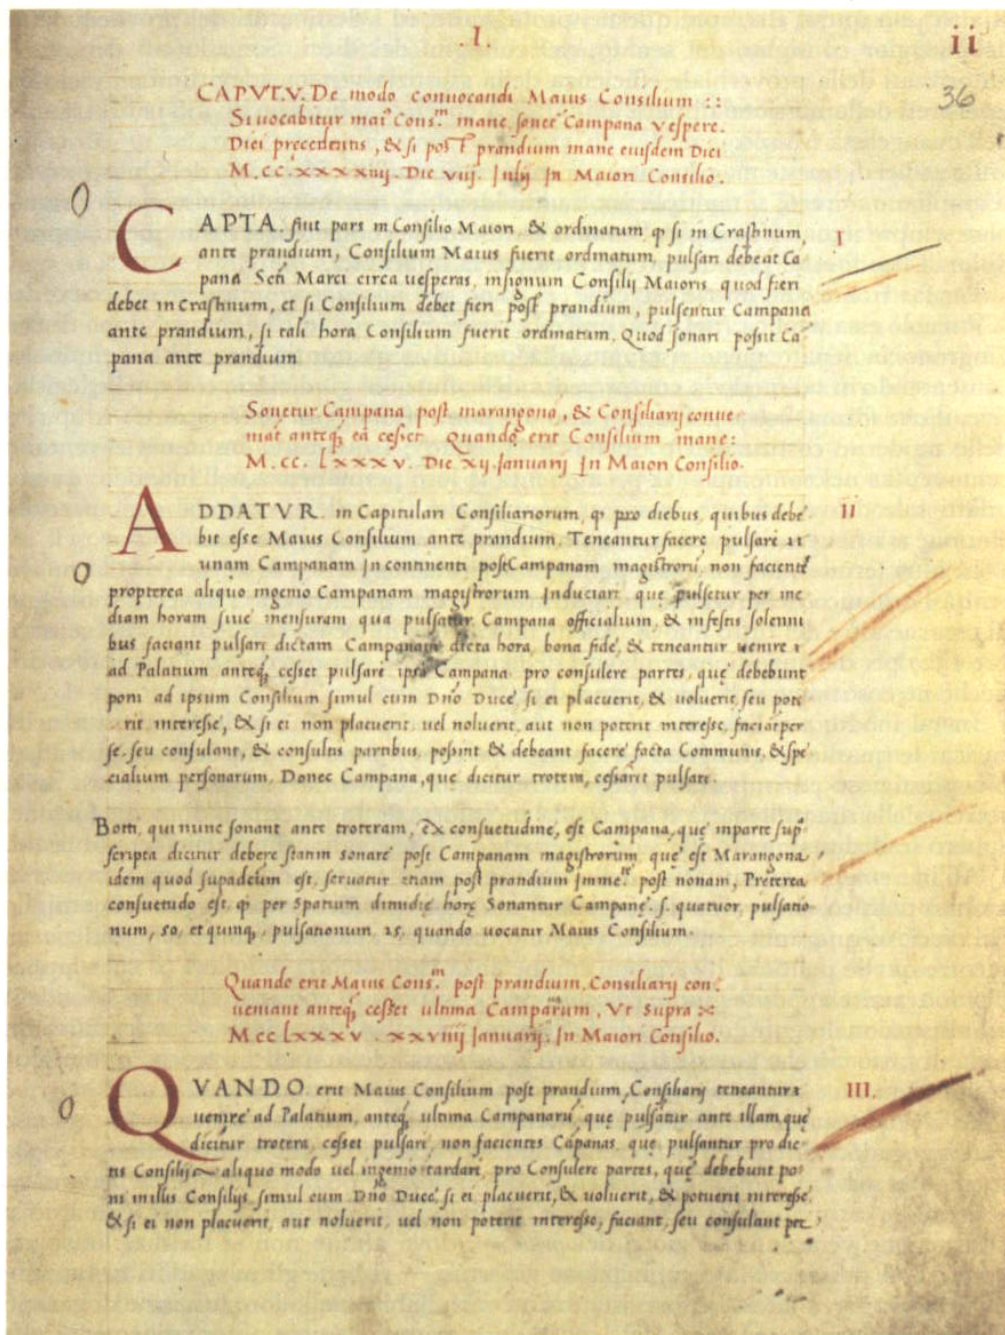 I
ii
36
CAPVT. V. De modo convocandi Maius Consilium ::
Si vocabitur mai9 Cons.m mane, sonet Campana vespere.
Diei precedentis, & si post prandium mane eiusdem Diei
M. CC. XXXXiiij. Die viij. Julij In Maiori Consilio.
CAPTA. fuit pars in Consilio Maiori & ordinatum q si in Crastinum,
I
ante prandium, Consilium Maius fuerit ordinatum, pulsari debeat Ca
pana Scti Marci circa vesperas, insignum Consilij Maioris quod fieri
debet in Crastinum, et si Consilium debet fieri post prandium, pulsentur Campana
ante prandium, si tali hora Consilium fuerit ordinatum. Quod sonari possit Ca
pana ante prandium
Sonetur Campana post marangona, & Consiliarij conue-
niat anteq; ea cesset Quando erit Consilium mane:
M. CC. lXXXV. Die xij. Januarij In Maiori Consilio.
ADDATVR. in Capitulari Consiliariorum, q pro diebus, quibus debe-
ii
bit esse Maius Consilium ante prandium, Teneantur facere pulsari
unam Campanam Jn continenti post Campanam magistroru, non faciente
propterea aliquo ingenio Campanam magistrorum Induciari que pulsetur per me
diam horam siue mensuram qua pulsatur Campana officialium, & in festis solenni
bus faciant pulsari dictam Campanam dicta hora, bona fide, & teneantur uenire
ad Palatium anteq; cesset pulsare ipsa Campana pro consulere partes, que debebunt
poni ad ipsum Consilium simul cum Dno Duce si ei placuerit, & uoluerit, seu pote
rit interesse, & si ei non placuerit uel noluerit, aut non poterit interesse, faciat per
se. seu consulant, & consultis partibus, possint & debeant facere facta Communis, & spe
cialium personarum, Donec Campana, que dicitur trotera, cessarit pulsari.
Botti, qui nunc sonant ante troteram, Ex consuetudine, est Campana, que in parte sup
scripta dicitur debere statim sonare post Campanam magistrorum, que est Marangona
idem quod supadcum est, servatur etiam post prandium Imme.te post nonam, Preterea
consuetudo est, q per Spatium dimidie hore Sonantur Campane. s. quatuor, pulsatio-
num, 50, et quinq; pulsationum. 25. quando uocatur Maius Consilium.
Quando erit Maius Cons.m post prandium, Consiliarij con-
ueniant anteq; cesset ultima Campanum, Vt Supra
M CC lXXXV. XXViiij Januarij. In Maiori Consilio.
QVANDO erit Maius Consilium post prandium, Consiliarij teneantur
III.
uenire ad Palatium, anteq; ultima Campanaru, que pulsatur ante illam, que
dicitur trotera, cesset pulsari, non facientes Capanas, que pulsantur pro dic-
tis Consilijs aliquo modo uel ingenio tardari, pro Consulere partes, que debebunt po-
ni in illis Consilijs, simul cum Dno Duce, si ei placuerit, & uoluerit, & potuerit interesse
& si ei non placuerit, aut noluerit, uel non poterit interesse, faciant, seu consulant per